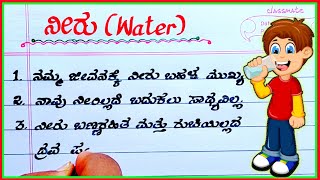 classmate
ನೀರು (Water)
1. ನಮ್ಮ ಜೀವನಕ್ಕೆ ನೀರು ಬಹಳ ಮುಖ್ಯ
2. ನಾವು ನೀರಿಲ್ಲದೆ ಬದುಕಲು ಸಾಧ್ಯವಿಲ್ಲ
3. ನೀರು ಬಣ್ಣರಹಿತ ಮತ್ತು ರುಚಿಯಿಲ್ಲದ
ದ್ರವ ಪ